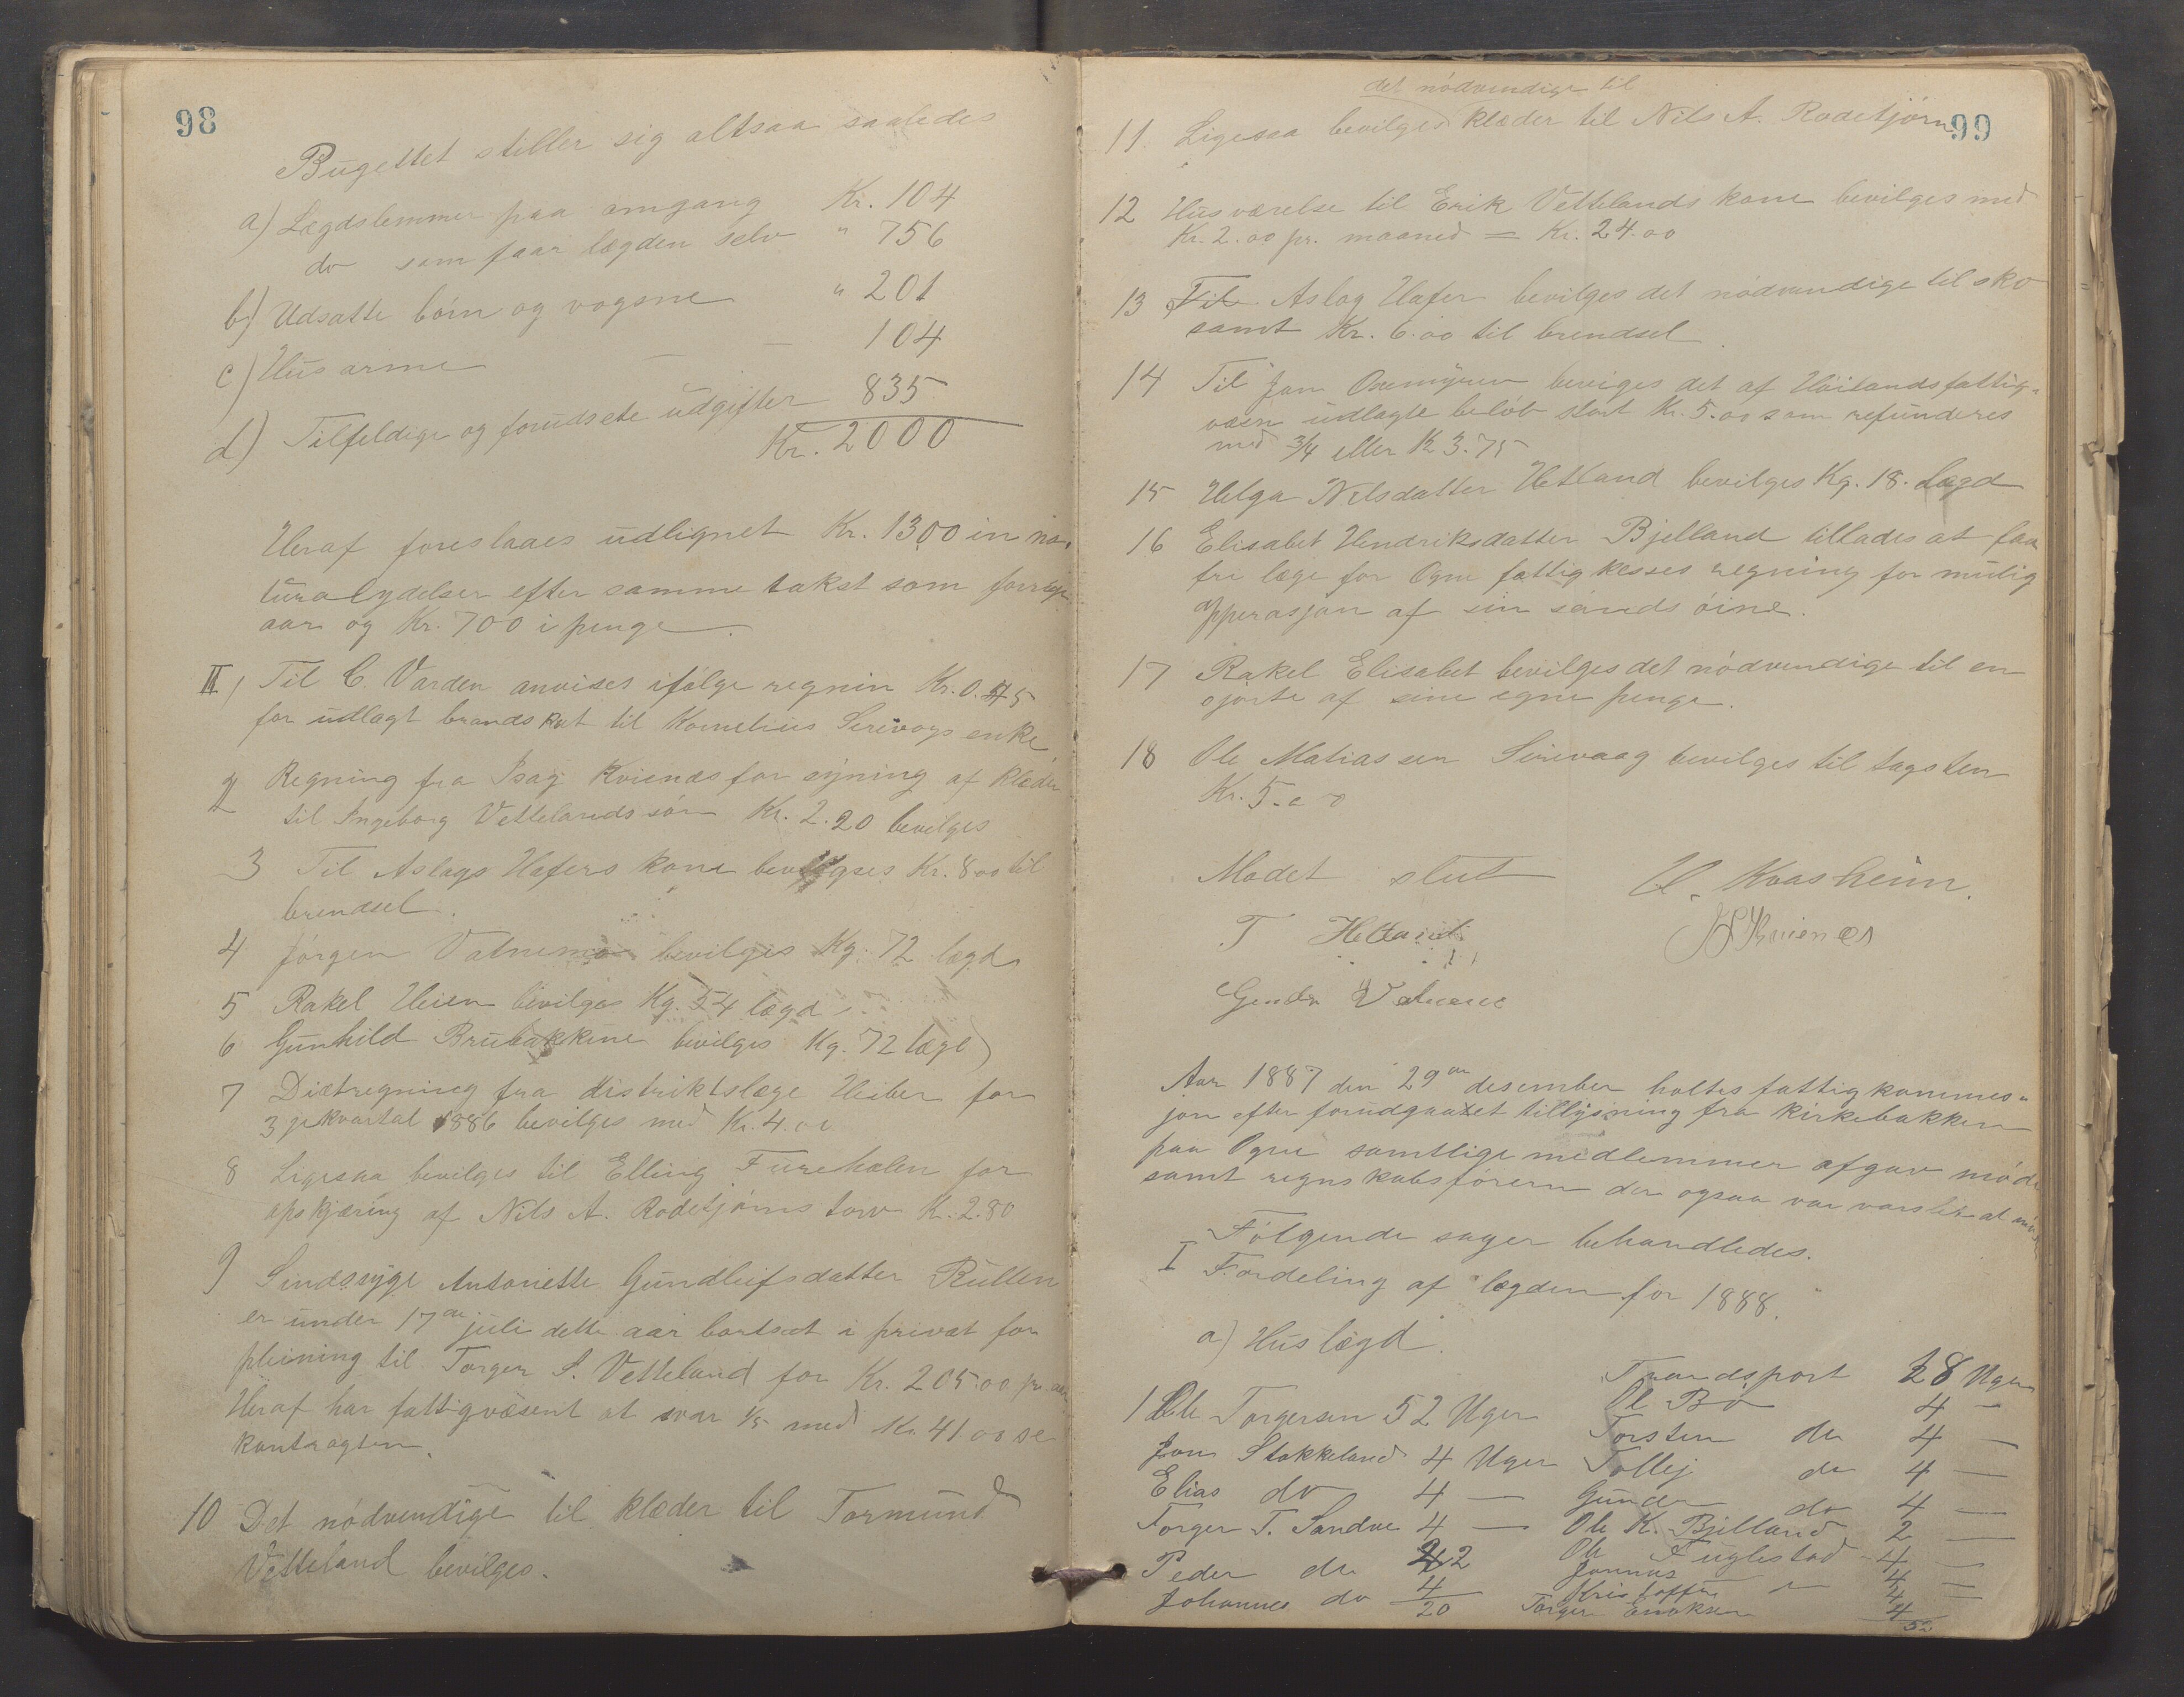 98
Bugettet stiller sig altsaa saaledes
a) Lægdslemmer paa omgang Kr. 104
do som faar lægden selv " 756
b) Udsatte børn og vogsne " 201
c) Husarme — — 104
d) Tilfeldige og forudsete udgifter 835
Kr. 2000
Heraf foreslaaes udlignet Kr. 1300 in na-
turalydelser efter samme takst som forrige
aar og Kr. 700 i penge.
II 1 Til C. Varden anvises ifølge regnin Kr. 0.45
for udlagt brandskat til Kornelius Sirevogs enke
2 Regning fra Isag Kvienes for syning af klæder
til Ingeborg Vettelands søn Kr. 2.20 bevilges
3 Til Aslags Hafers kone bevilgses Kr. 8.00 til
brendsel.
4 Jørgen Vatnemo bevilges Kg. 72 lægd
5 Rakel Heien bevilges Kg. 54 lægd
6 Gunhild Brubakkene bevilges Kg. 72 lægd
7 Diætregning fra distriktslæge Heiber for
3je kvartal 1886 bevilges med Kr. 4.00
8 Ligesaa bevilges til Elling Fureholen for
opskjæring af Nils A. Rodetjørns torv Kr. 2.80
9 Sindssyge Antonette Gundleifsdatter Rullen
er under 17de juli dette aar bortsat i privat for
pleining til Torger S. Vetteland for Kr. 205.00 pr. aar
Heraf har fattigvæsent at svar 1/5 med Kr. 41.00 se
kontragten.
10 Det nødvendige til klæder til Tormund
Vetteland bevilges.
99
det nødvendige til
11 Ligesaa bevilges klæder til Nils A. Rodetjørn
12 Husværelse til Erik Vettelands kone bevilges med
Kr. 2.00 pr. maaned = Kr. 24.00
13 Til Aslag Hafer bevilges det nødvendige til sko
samt Kr. 6.00 til brendsel.
14 Til Jan Osemyren beviges det af Høilandsfattig-
væsen udlagte beløb stort Kr. 5.00 som refunderes
med 3/4 eller K 3.75
15 Helga Nilsdatter Hetland bevilges Kg. 18. Lægd
16 Elisabet Hendriksdatter Bjelland tillades at faa
fri læge for Ogne fattigkesses regning for mulig
opperasjon af sin sønds øine.
17 Rakel Elisabet bevilges det nødvendige til en
sjorte af sine egne penge.
18 Ole Matiassen Sirevaag bevilges til tagsten
Kr. 5.00
Mødet slut H. Kvasheim.
T Hetland Kvienes
Gunder Vatnemo
Aar 1887 den 29de desember holtes fattigkommes-
jon efter forudgaaet tillysning fra kirkebakken
paa Ogne samtlige medlemmer afgav møde
samt regnskabsføreren der ogsaa var varslet at møde
Følgende sager behandledes.
I Fordeling af lægden for 1888.
a) Huslægd.
1 Ole Torgersen 52 Uger
Jon Stokkeland 4 Uger
Elias do 4 —
Torger T. Sandve 4 —
Peder do 42
Johannes do 4
20
Trandsport 28 Uger
Ol Bø 4 —
Torsten do 4 —
Tollej do 4 —
Gunder do 4 —
Ole K. Bjelland 2 —
Ole Fuglestad 4 —
Jonnas 4 —
Kristoffer 4 —
Torger Enoksen 4
52